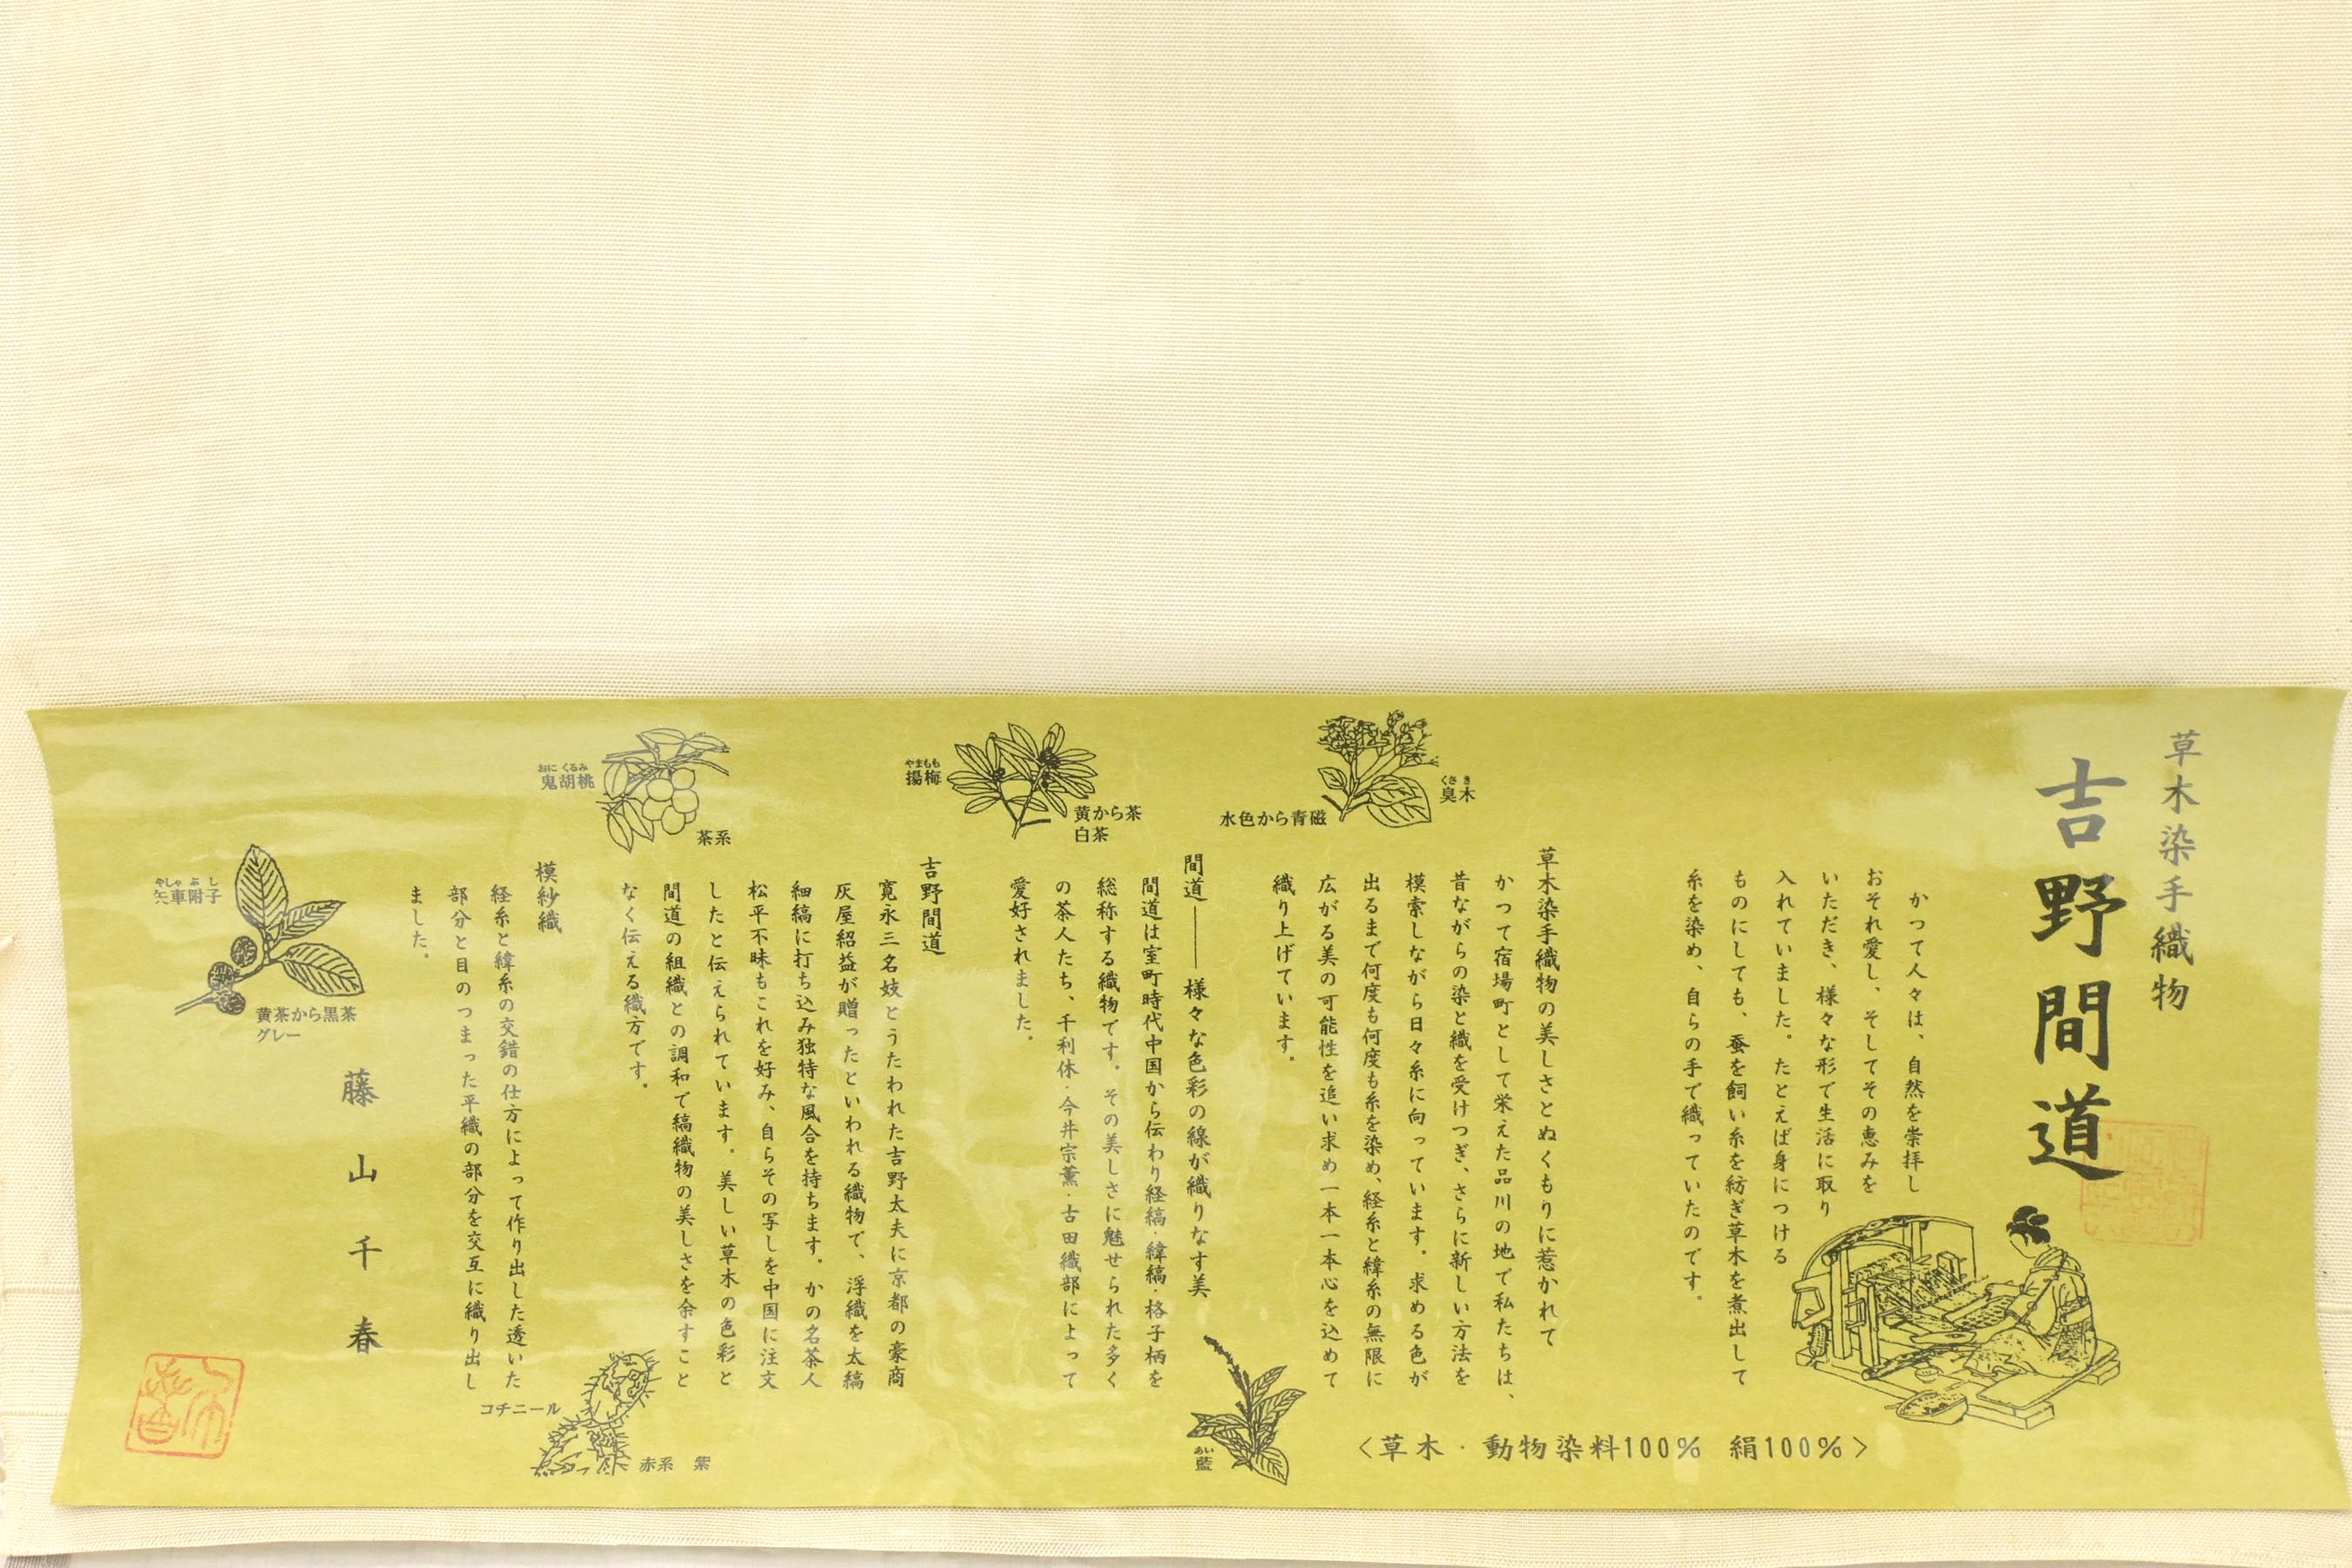 草木染手織物
吉野間道
かつて人々は、自然を崇拝し
おそれ愛し、そしてその恵みを
いただき、様々な形で生活に取り
入れていました。たとえば身につける
ものにしても、蚕を飼い糸を紡ぎ草木を煮出して
糸を染め、自らの手で織っていたのです。
草木染手織物の美しさとぬくもりに惹かれて
かつて宿場町として栄えた品川の地で私たちは、
昔ながらの染と織を受けつぎ、さらに新しい方法を
模索しながら日々糸に向っています。求める色が
出るまで何度も何度も糸を染め、経糸と緯糸の無限に
広がる美の可能性を追い求め一本一本心を込めて
織り上げています。
〈草木・動物染料100% 絹100%〉
くさき
臭木
水色から青磁
間道――様々な色彩の線が織りなす美
間道は室町時代中国から伝わり経縞・緯縞・格子柄を
総称する織物です。その美しさに魅せられた多く
の茶人たち、千利休・今井宗薫・古田織部によって
愛好されました。
あい
藍
やまもも
揚梅
黄から茶
白茶
吉野間道
寛永三名妓とうたわれた吉野太夫に京都の豪商
灰屋紹益が贈ったといわれる織物で、浮織を太縞
細縞に打ち込み独特な風合を持ちます。かの名茶人
松平不昧もこれを好み、自らその写しを中国に注文
したと伝えられています。美しい草木の色彩と
間道の組織との調和で縞織物の美しさを余すこと
なく伝える織方です。
おにくるみ
鬼胡桃
茶系
模紗織
経糸と緯糸の交錯の仕方によって作り出した透いた
部分と目のつまった平織の部分を交互に織り出し
ました。
コチニール
赤系 紫
やしゃぶし
矢車附子
黄茶から黒茶
グレー
藤山千春